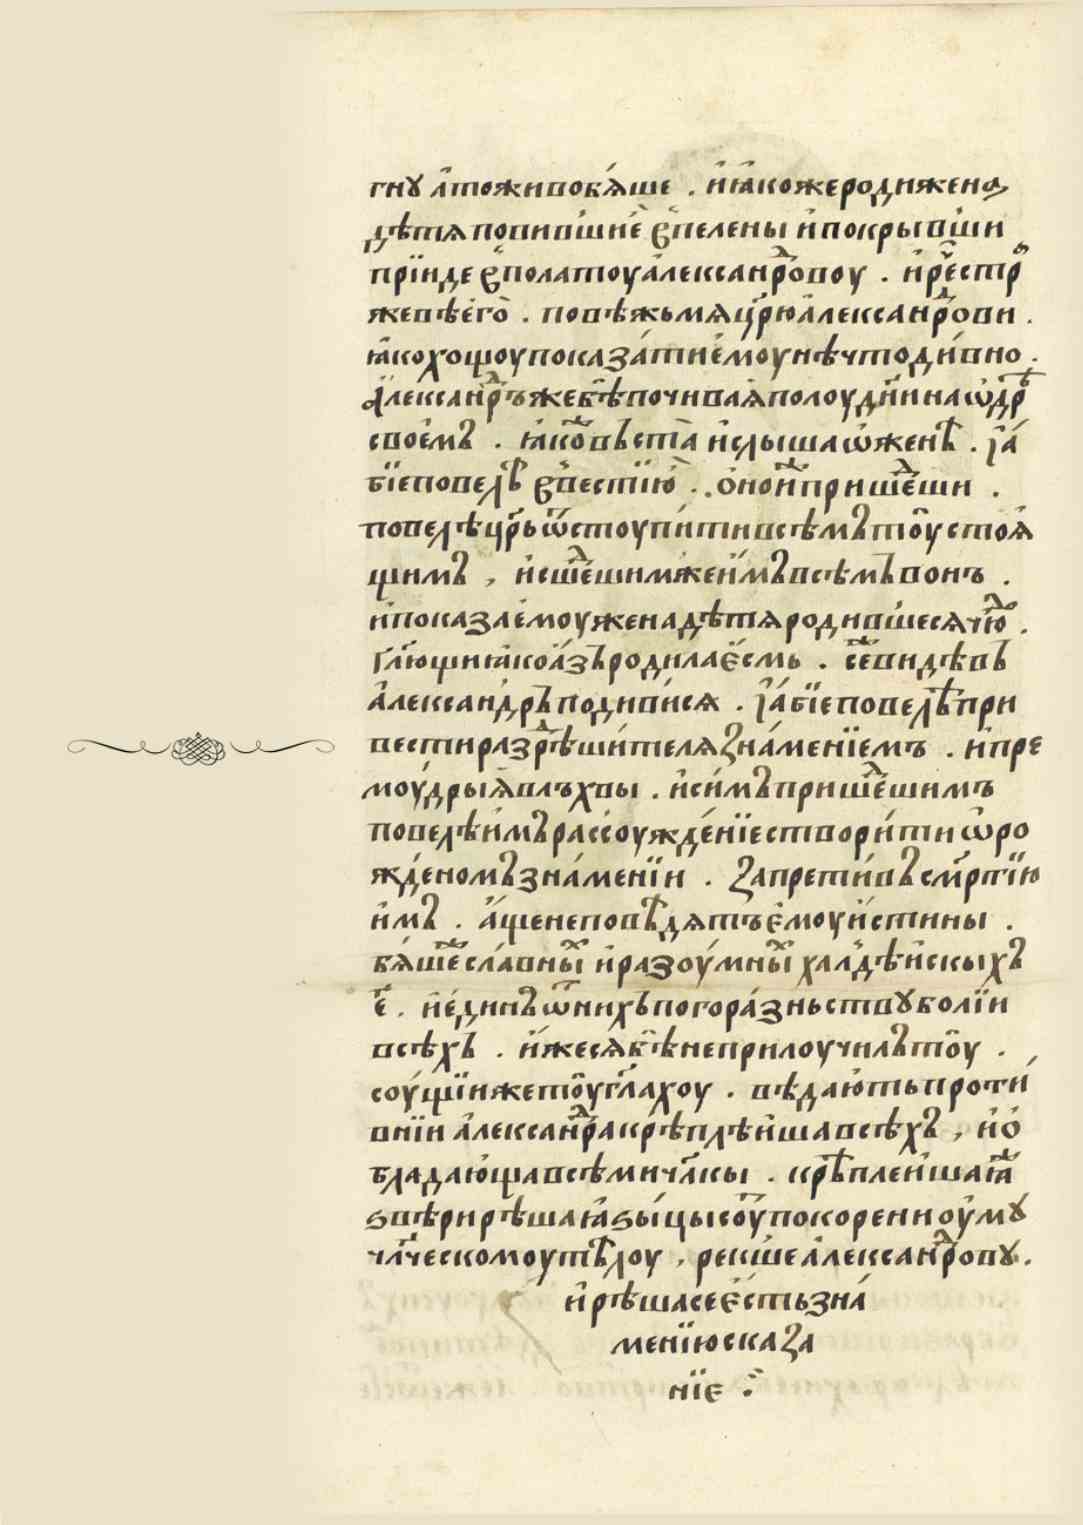 гнꙋ а҆тоживобѧ́ше . и҆ ꙗ҆коже роди жена
дѣтѧ повившиѐ в̾пелены и҆ покрывши
прїиде в̾полатоу а҆леѯанⷣровоу . и҆ рече стрⷤа
же въ е҆го̀ . повѣжь мѧ цр҃ю а҆лексанⷣрови .
ꙗ҆ко хощоу показа́ти е҆моу нѣчто ди́вно .
а҆лексанⷣръ же бѣ̑ почиваѧ̀ полоуд҃ни на ѻ҆дрѣ̀
свое́мъ . ꙗ҆коⷤ въста̀ и҆ слыша ѡ҆ женѣ̀ . и҆ а́
бїе повелѣ̀ в̾вести ю҆̀ . о҆ноиⷤ пришеⷣши .
повелѣ цр҃ь ѿстоупи́ти всѣмъ тоу̑ стоѧ̀
щимъ , и҆сшеⷣшим же и҆́мъ всѣмъ вонъ .
и҆ показа е҆моу жена дѣтѧ родившесѧ чюⷣ .
гл҃ющи ꙗ҆ко а҆́зъ родила е҆́смь . сеⷤ видѣвъ
а҆лександръ подиви́сѧ . и҆ а́бїе повелѣ̀ при
вести разⷣрѣши́телѧ зна́менїемъ . и҆ пре
моу́дрыѧ̀ влъхвы . и҆ си́мъ пришеⷣшимъ
повелѣ и҆́мъ рассоужде́нїе створи́ти ѡ҆ ро
жде́номъ зна́менїи . запрети́въ смр҃тїю
и҆́мъ . а҆́ще не повѣ́дѧтъ е҆моу и҆́стины .
бѧ́шеⷤ сла́вныⷯ и҆ разоу́мныⷯ халдѣ́искыхъ
е҃ . и҆ е҆ди́нъ ѿ нихъ погора́зньствꙋ болїи
всѣхъ . и҆́же сѧ бѣ̑ не прилоучилъ тоу̑ .
соу́щїи же тоу̑ гл҃ахоу . вѣдаю҆ть проти́
внїи а҆лексанⷣра крѣплѣи҆ша всѣхъ , и҆ о҆
бладаю҆ща всѣми чл҃кы . крѣ́плеи҆шаꙗⷤ
ѕвѣри рѣша ꙗ҆ѕы́цы соуⷮ покорени оу҆мꙋ
чл҃ческомоу тѣ́лоу , рекше а҆лексанⷣровꙋ .
и҆ рѣша се е҆́сть зна́
менїю сказа
нїе